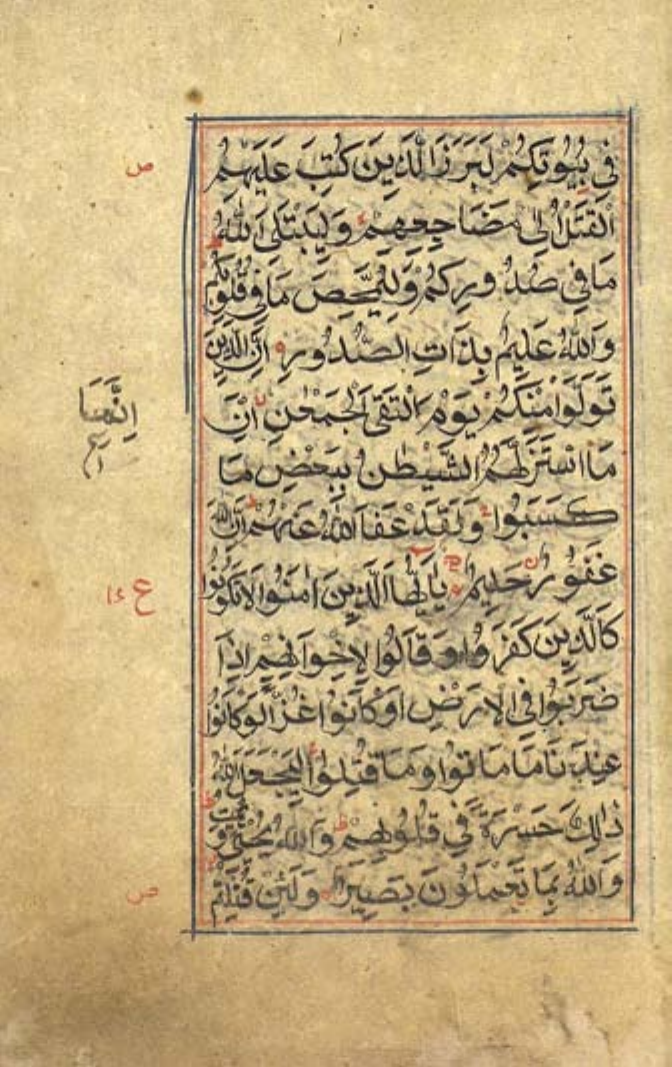 فِي بُيُوتِكُمْ لَبَرَزَ الَّذِينَ كُتِبَ عَلَيْهِمُ
الْقَتْلُ اِلٰى مَضَاجِعِهِمْ وَلِيَبْتَلِىَ اللّٰهُ
مَا فِي صُدُورِكُمْ وَلِيُمَحِّصَ مَا فِي قُلُوبِكُمْ
وَاللّٰهُ عَلِيمٌ بِذَاتِ الصُّدُورِ اِنَّ الَّذِينَ
تَوَلَّوْا مِنْكُمْ يَوْمَ الْتَقَى الْجَمْعٰنِ اِنَّ
اِنَّمَا
مَا اسْتَزَلَّهُمُ الشَّيْطٰنُ بِبَعْضِ مَا
كَسَبُوا وَلَقَدْ عَفَا اللّٰهُ عَنْهُمْ اِنَّ اللّٰهَ
غَفُورٌ حَلِيمٌ يٰاَيُّهَا الَّذِينَ اٰمَنُوا لَا تَكُونُوا
ع
كَالَّذِينَ كَفَرُوا وَقَالُوا لِاِخْوَانِهِمْ اِذَا
ضَرَبُوا فِي الْاَرْضِ اَوْ كَانُوا غُزًّى لَوْ كَانُوا
عِنْدَنَا مَا مَاتُوا وَمَا قُتِلُوا لِيَجْعَلَ اللّٰهُ
ذٰلِكَ حَسْرَةً فِي قُلُوبِهِمْ وَاللّٰهُ يُحْيِي وَيُمِيتُ
وَاللّٰهُ بِمَا تَعْمَلُونَ بَصِيرٌ وَلَئِنْ قُتِلْتُمْ